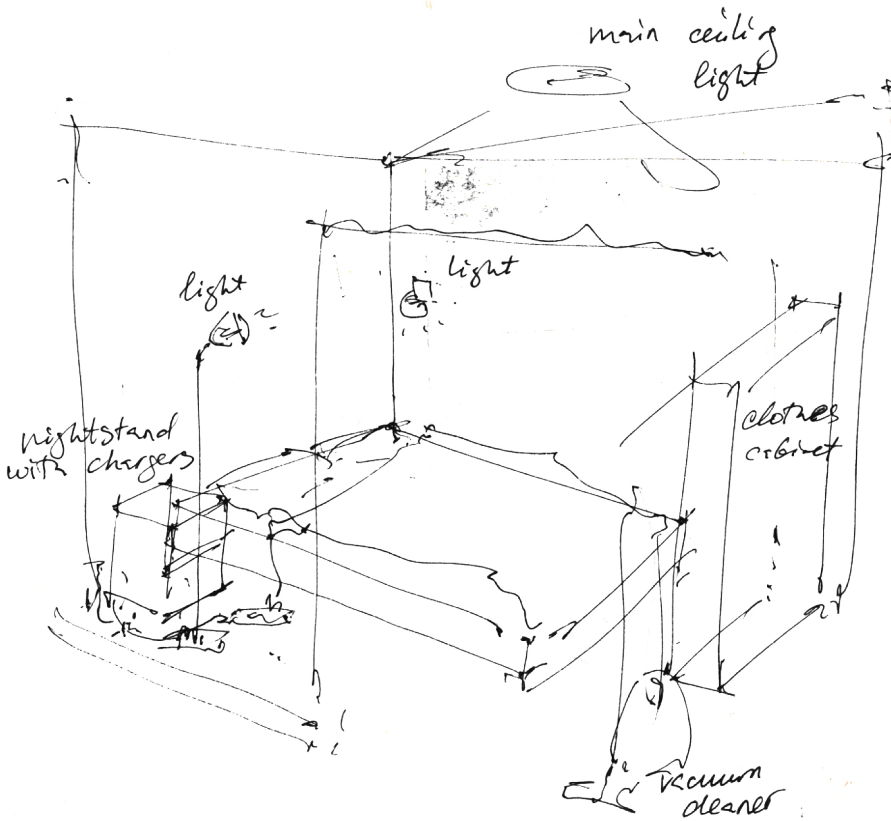 main ceiling
light
light
light
nightstand
with chargers
clothes
cabinet
vacuum
cleaner